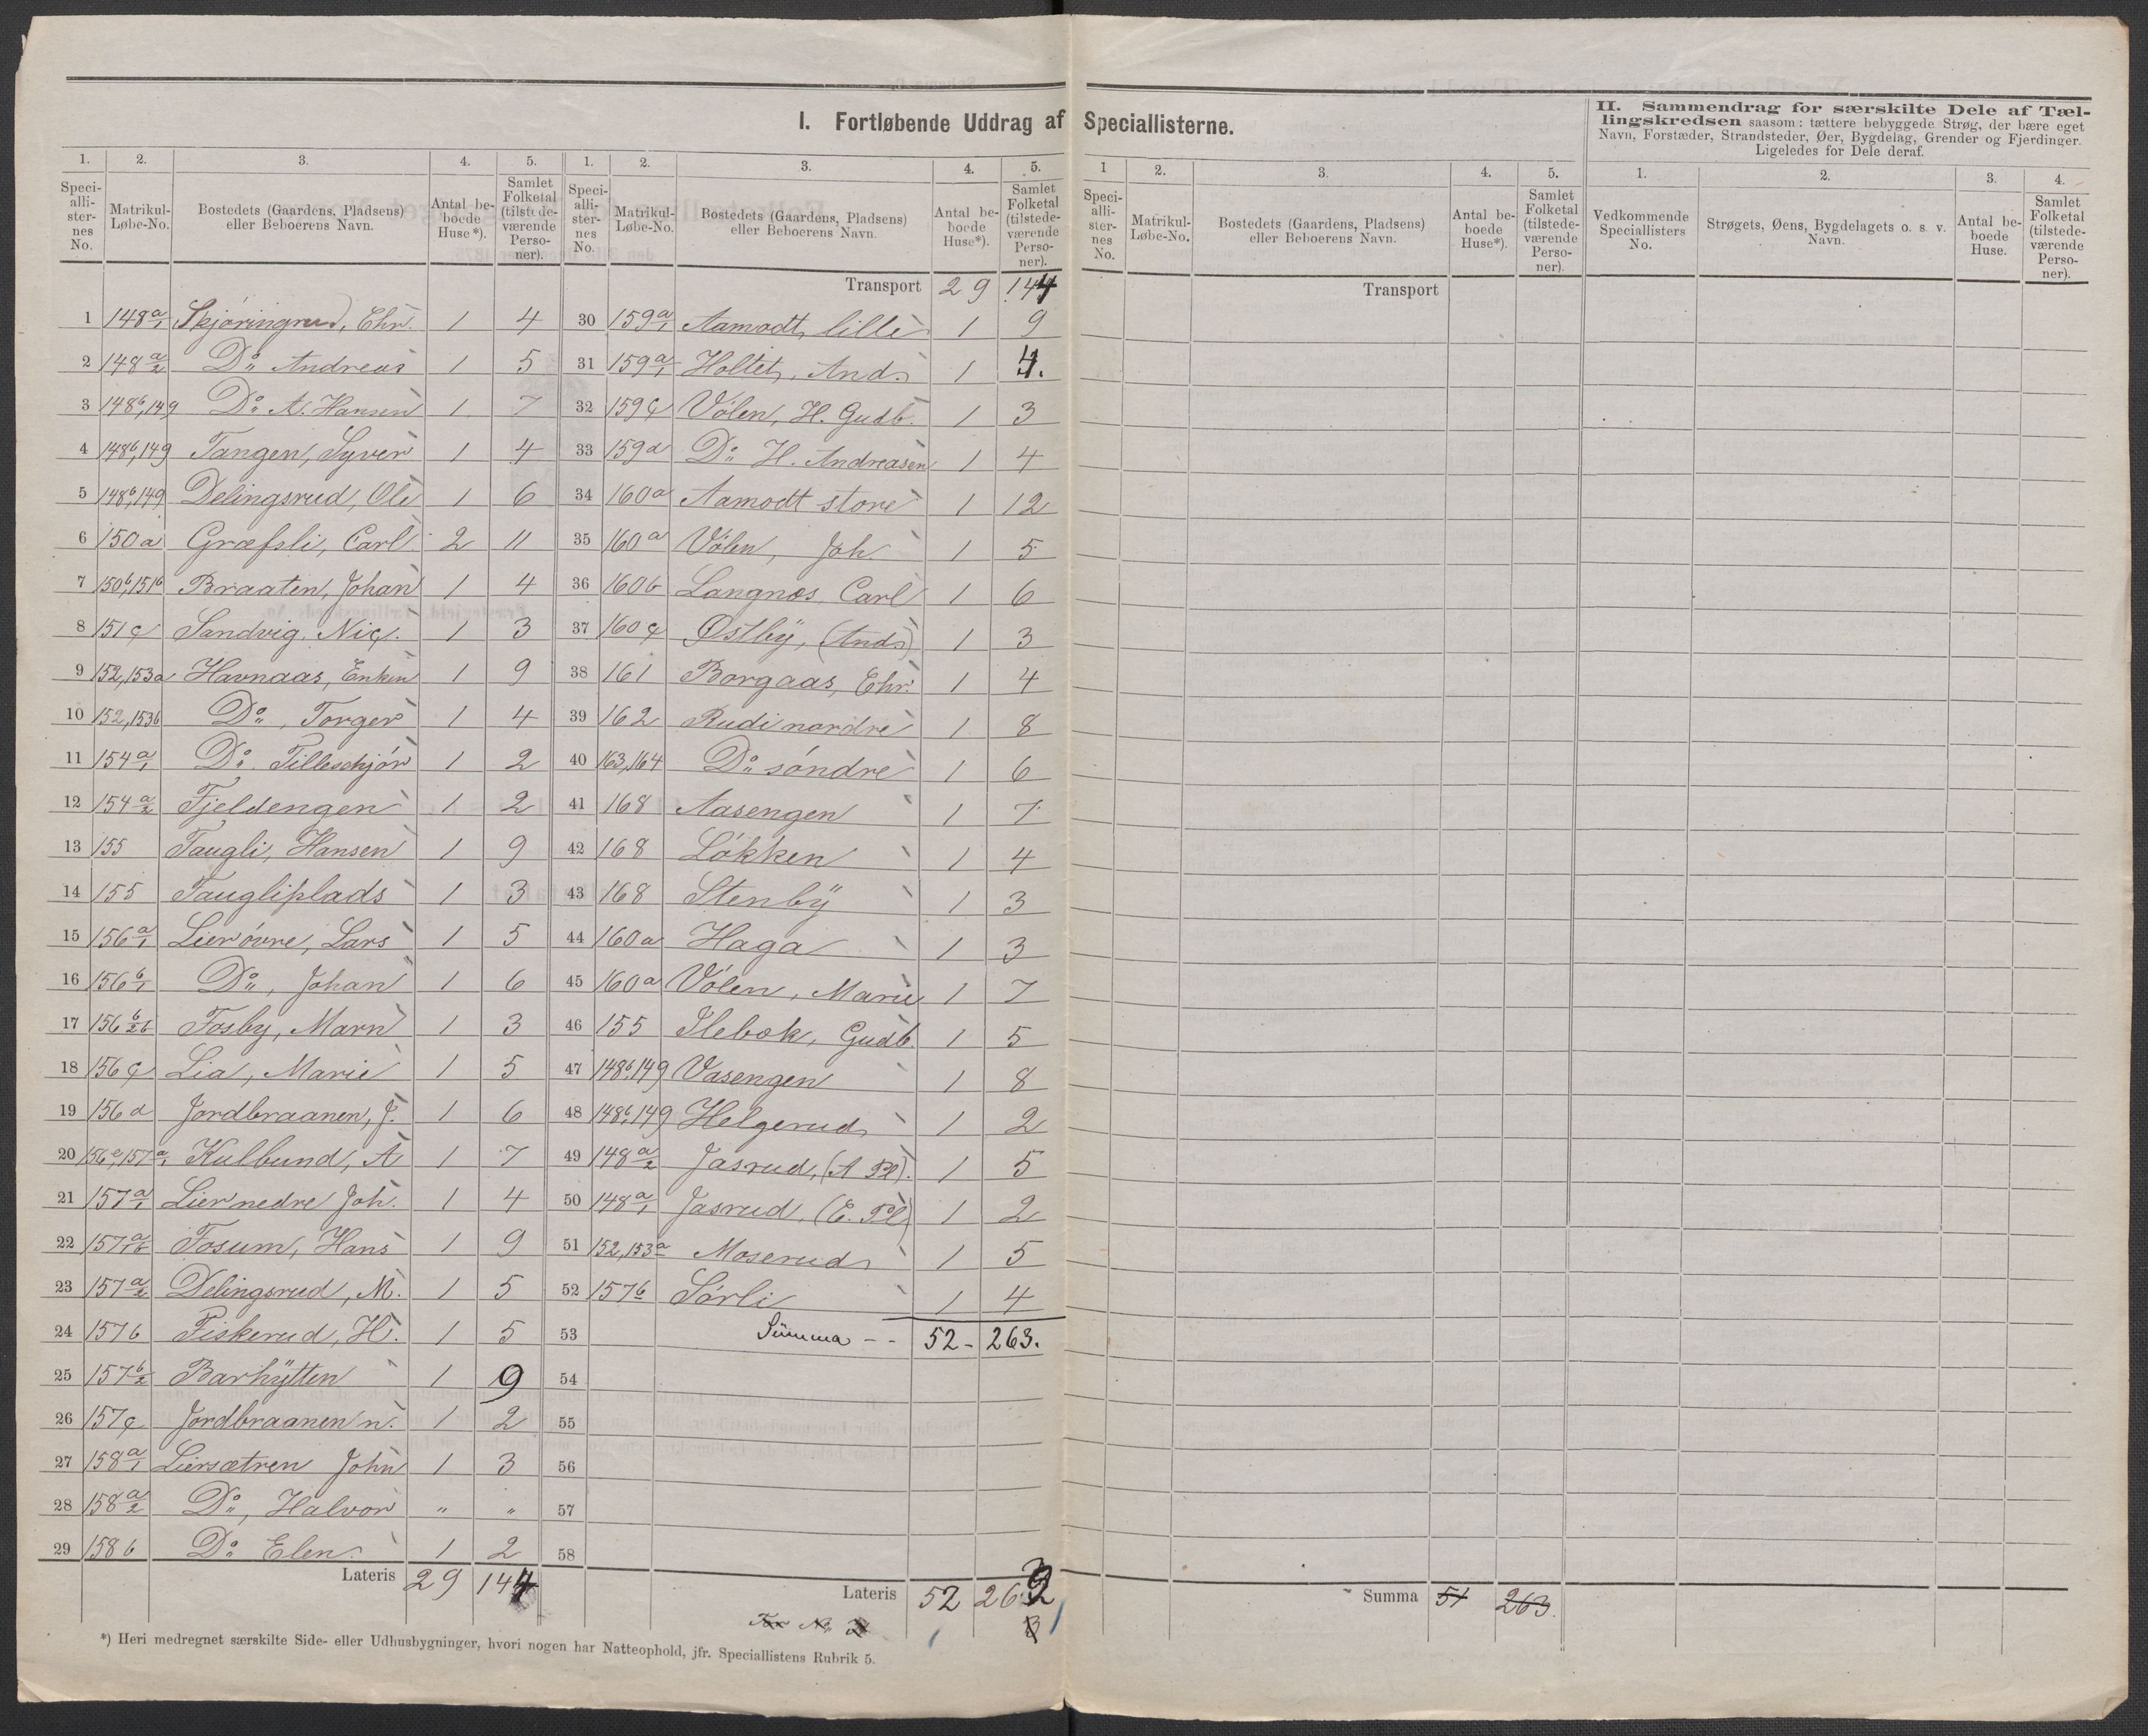 I. Fortløbende Uddrag af Speciallisterne.
1. 2. 3. 4. 5.
Speci-alli-ster-nes No. Matrikul-Løbe-No. Bostedets (Gaardens, Pladsens) eller Beboerens Navn. Antal be-boede Huse*). Samlet Folketal (tilstede-værende Perso-ner).
1 148a/1 Skjøringrud, Chr. 1 4
2 148a/2 Do Andreas 1 5
3 148b,149 Do A. Hansen 1 7
4 148b,149 Tangen, Syver 1 4
5 148b,149 Delingsrud, Ole 1 6
6 150a Græfsli, Carl 2 11
7 150b,151b Braaten, Johan 1 4
8 151c Sandvig. Nic. 1 3
9 152,153a Havnaas, Enken 1 9
10 152,153b Do, Torger 1 4
11 154a/1 Do. Tilleschjør 1 2
12 154a/2 Fjeldengen 1 2
13 155 Taugli, Hansen 1 9
14 155 Taugliplads 1 3
15 156a/1 Lier øvre, Lars 1 5
16 156b/1 Do, Johan 1 6
17 156b/2b Fosby, Marn 1 3
18 156c Lia, Marie 1 5
19 156d Jordbraanen, J. 1 6
20 156e,157a/1 Kulbund, A 1 7
21 157a/1 Lier nedre Joh. 1 4
22 157a/1b Fosum, Hans 1 9
23 157a/2 Delingsrud, M. 1 5
24 157b Fiskerud, H. 1 5
25 157b/2 Barhytten 1 9
26 157c Jordbraanen n. 1 2
27 158a/1 Liersætren John 1 3
28 158a/2 Do, Halvor " "
29 158b Do Elen 1 2
Lateris 29 144
*) Heri medregnet særskilte Side- eller Udhusbygninger, hvori nogen har Natteophold, jfr. Speciallistens Rubrik 5.
1. 2. 3. 4. 5.
Speci-alli-ster-nes No. Matrikul-Løbe-No. Bostedets (Gaardens, Pladsens) eller Beboerens Navn. Antal be-boede Huse*). Samlet Folketal (tilstede-værende Perso-ner).
Transport 29 144
30 159a/1 Aamodt, lille 1 9
31 159a/1 Holtet, And. 1 4.
32 159c Vølen, H. Gudb. 1 3
33 159d Do H. Andreasen 1 4
34 160a Aamodt store 1 12
35 160a Vølen, Joh 1 5
36 160b Langnæs Carl 1 6
37 160c Østby, (Ands) 1 3
38 161 Borgaas, Chr. 1 4
39 162 Rudi nordre 1 8
40 163,164 Do søndre 1 6
41 168 Aasengen 1 7
42 168 Løkken 1 4
43 168 Stenby 1 3
44 160a Haga 1 3
45 160a Vølen, Marie 1 7
46 155 Ilebæk, Gudb. 1 5
47 148b,149 Vasengen 1 8
48 148b,149 Helgerud 1 2
49 148a/2 Jasrud, (A Pl). 1 5
50 148a/1 Jasrud, (E. Pl) 1 2
51 152,153a Moserud 1 5
52 157b Sørli 1 4
53 Summa -- 52- 263.
54
55
56
57
58
Lateris 52 262
1 2. 3. 4. 5.
Speci-alli-ster-nes No. Matrikul-Løbe-No. Bostedets (Gaardens, Pladsens) eller Beboerens Navn. Antal be-boede Huse*). Samlet Folketal (tilstede-værende Perso-ner).
Transport
Summa 51 263.
II. Sammendrag for særskilte Dele af Tæl-
lingskredsen saasom: tættere bebyggede Strøg, der bære eget
Navn, Forstæder, Strandsteder, Øer, Bygdelag, Grender og Fjerdinger.
Ligeledes for Dele deraf.
1. 2. 3. 4.
Vedkommende Speciallisters No. Strøgets, Øens, Bygdelagets o. s. v. Navn. Antal be-boede Huse. Samlet Folketal (tilstede-værende Perso-ner).